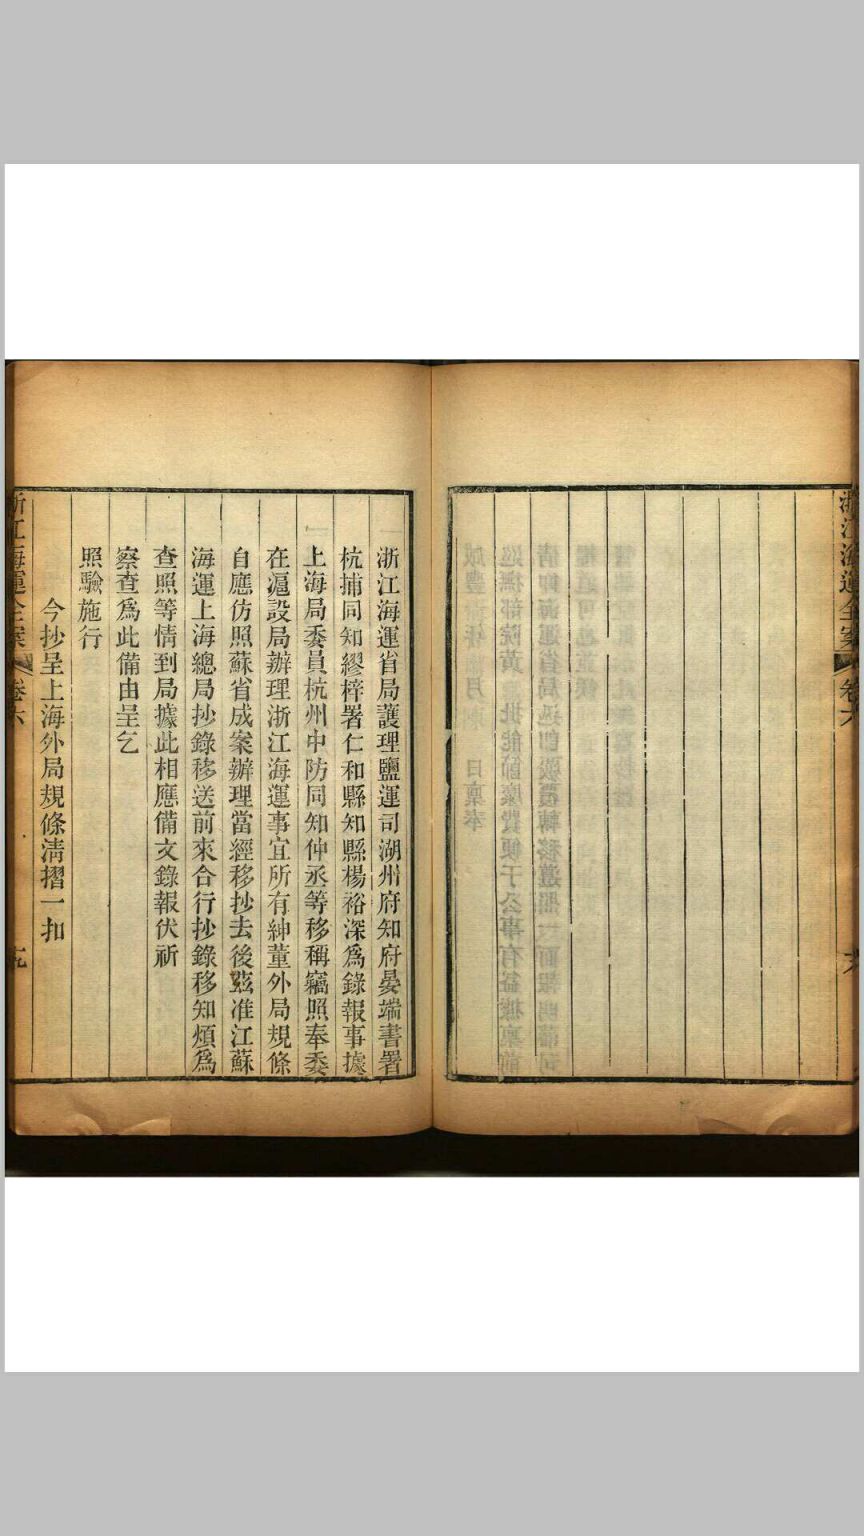 浙江海運全案 卷六
浙江海運省局護理鹽運司湖州府知府晏端書署
杭捕同知繆梓署仁和縣知縣楊裕深爲錄報事據
上海局委員杭州中防同知仲丞等移稱竊照奉委
在滬設局辦理浙江海運事宜所有紳董外局規條
自應仿照蘇省成案辦理當經移抄去後茲准江蘇
海運上海總局抄錄移送前來合行抄錄移知煩爲
查照等情到局據此相應備文錄報伏祈
察查爲此備由呈乞
照驗施行
今抄呈上海外局規條淸摺一扣
浙江海運全案 卷六